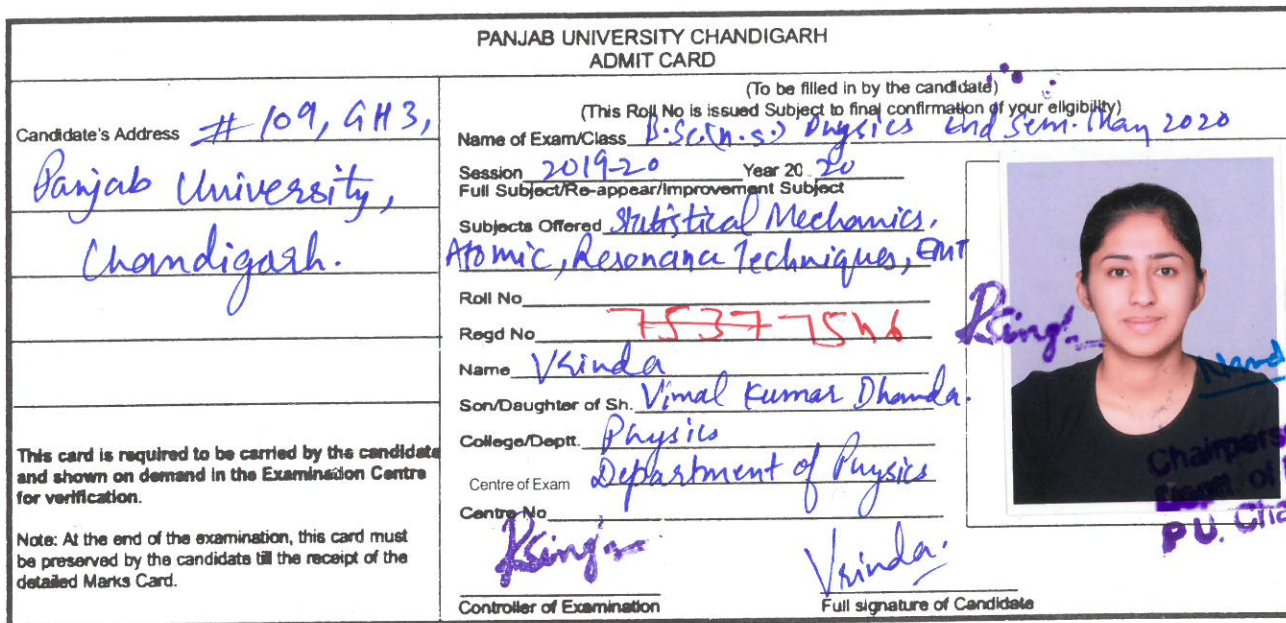 PANJAB UNIVERSITY CHANDIGARH
ADMIT CARD
Candidate's Address # 109, GH3,
Panjab University,
Chandigarh.
This card is required to be carried by the candidate
and shown on demand in the Examination Centre
for verification.
Note: At the end of the examination, this card must
be preserved by the candidate till the receipt of the
detailed Marks Card.
(To be filled in by the candidate)
(This Roll No is issued Subject to final confirmation of your eligibility)
Name of Exam/Class B.Sc.(H.S.) Physics End Sem. May 2020
Session 2019-20 Year 20 20
Full Subject/Re-appear/Improvement Subject
Subjects Offered Statistical Mechanics,
Atomic, Resonance Techniques, EMT
Roll No
Regd No
Name Vrinda
Son/Daughter of Sh. Vimal Kumar Dhanda.
College/Deptt. Physics
Centre of Exam Department of Physics
Centre No
Controller of Examination
Vrinda.
Full signature of Candidate
Chairpers
Deptt. of
P.U. Cha